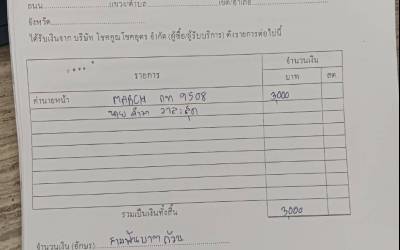 ถนน แขวง/ตำบล เขต/อำเภอ
จังหวัด
ได้รับเงินจาก บริษัท โชคคูณโชคอุดร จำกัด (ผู้ซื้อ/ผู้รับบริการ) ดังรายการต่อไปนี้
รายการ จำนวนเงิน
บาท สต
ค่านายหน้า MARCH กท 9508 3,000
รวมเป็นเงินทั้งสิ้น 3,000
จำนวนเงิน (อักษร) สามพันบาทถ้วน